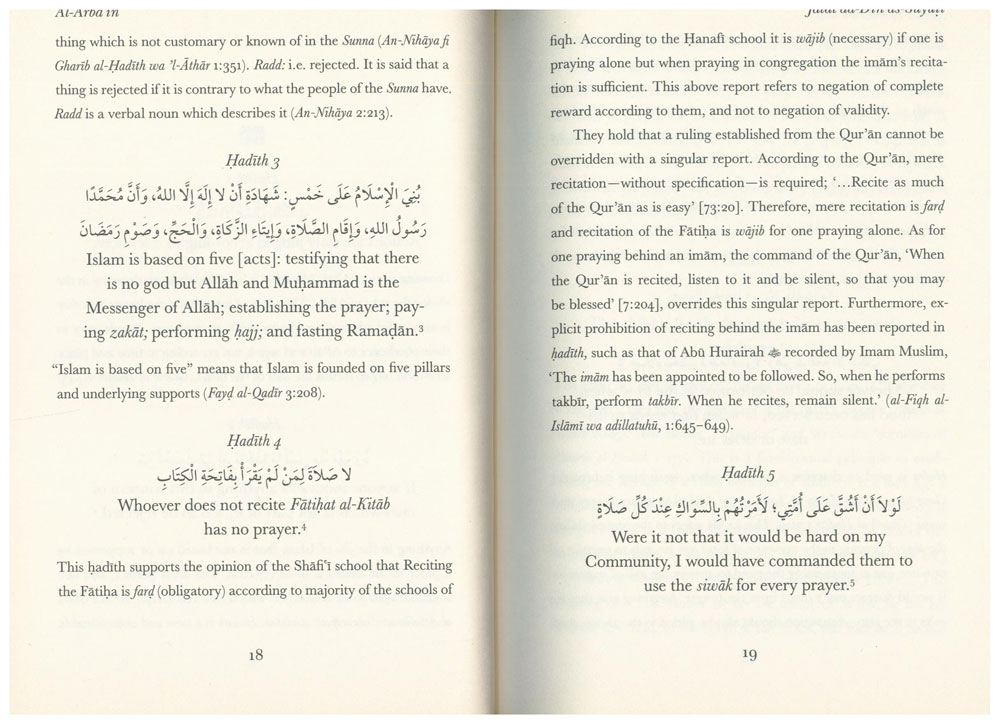 Al-Arbaʿīn
thing which is not customary or known of in the Sunna (An-Nihāya fi
Gharīb al-Ḥadīth wa ’l-Āthār 1:351). Radd: i.e. rejected. It is said that a
thing is rejected if it is contrary to what the people of the Sunna have.
Radd is a verbal noun which describes it (An-Nihāya 2:213).
Ḥadīth 3
بُنِيَ الْإِسْلَامُ عَلَى خَمْسٍ: شَهَادَةِ أَنْ لا إِلَهَ إِلَّا اللهُ، وَأَنَّ مُحَمَّدًا
رَسُولُ اللهِ، وَإِقَامِ الصَّلَاةِ، وَإِيتَاءِ الزَّكَاةِ، وَالْحَجِّ، وَصَوْمِ رَمَضَانَ
Islam is based on five [acts]: testifying that there
is no god but Allāh and Muḥammad is the
Messenger of Allāh; establishing the prayer; pay-
ing zakāt; performing ḥajj; and fasting Ramaḍān.³
“Islam is based on five” means that Islam is founded on five pillars
and underlying supports (Fayḍ al-Qadīr 3:208).
Ḥadīth 4
لا صَلَاةَ لِمَنْ لَمْ يَقْرَأْ بِفَاتِحَةِ الْكِتَابِ
Whoever does not recite Fātiḥat al-Kitāb
has no prayer.⁴
This ḥadīth supports the opinion of the Shāfiʿī school that Reciting
the Fātiḥa is farḍ (obligatory) according to majority of the schools of
18
Jalāl ad-Dīn as-Suyūṭī
fiqh. According to the Ḥanafī school it is wājib (necessary) if one is
praying alone but when praying in congregation the imām’s recita-
tion is sufficient. This above report refers to negation of complete
reward according to them, and not to negation of validity.
They hold that a ruling established from the Qur’ān cannot be
overridden with a singular report. According to the Qur’ān, mere
recitation—without specification—is required; ‘…Recite as much
of the Qur’ān as is easy’ [73:20]. Therefore, mere recitation is farḍ
and recitation of the Fātiḥa is wājib for one praying alone. As for
one praying behind an imām, the command of the Qur’ān, ‘When
the Qur’ān is recited, listen to it and be silent, so that you may
be blessed’ [7:204], overrides this singular report. Furthermore, ex-
plicit prohibition of reciting behind the imām has been reported in
ḥadīth, such as that of Abū Hurairah ﷺ recorded by Imam Muslim,
‘The imām has been appointed to be followed. So, when he performs
takbīr, perform takbīr. When he recites, remain silent.’ (al-Fiqh al-
Islāmī wa adillatuhū, 1:645–649).
Ḥadīth 5
لَوْلاَ أَنْ أَشُقَّ عَلَى أُمَّتِي؛ لَأَمَرْتُهُمْ بِالسِّوَاكِ عِنْدَ كُلِّ صَلَاةٍ
Were it not that it would be hard on my
Community, I would have commanded them to
use the siwāk for every prayer.⁵
19